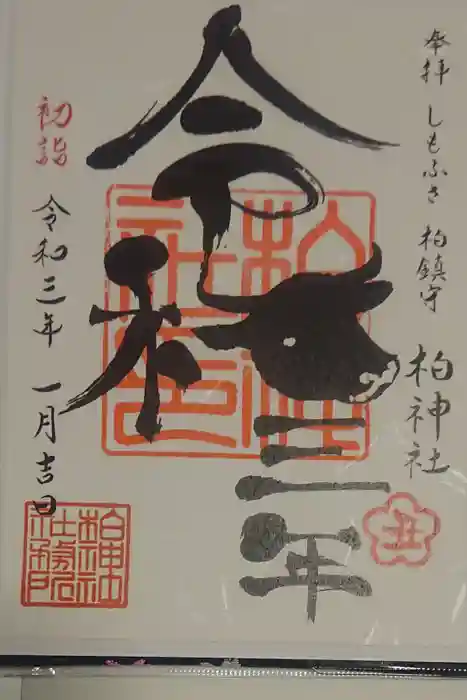 奉拝 しもふさ 柏鎮守
柏神社
丑
令和三年
柏神社印
初詣
令和三年 一月吉日
柏神社社務所